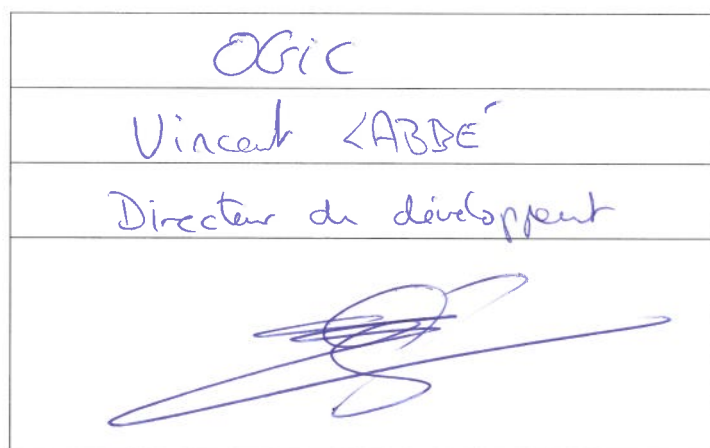 OGiC
Vincent LABBÉ
Directeur du développent